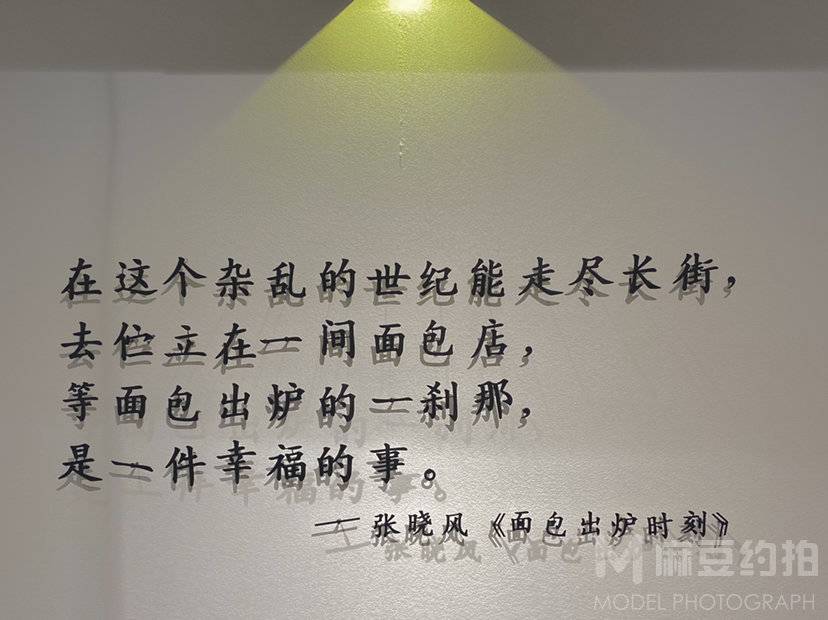 在这个杂乱的世纪能走尽长街，
去伫立在一间面包店，
等面包出炉的一刹那，
是一件幸福的事。
——张晓风《面包出炉时刻》
麻豆约拍
MODEL PHOTOGRAPH